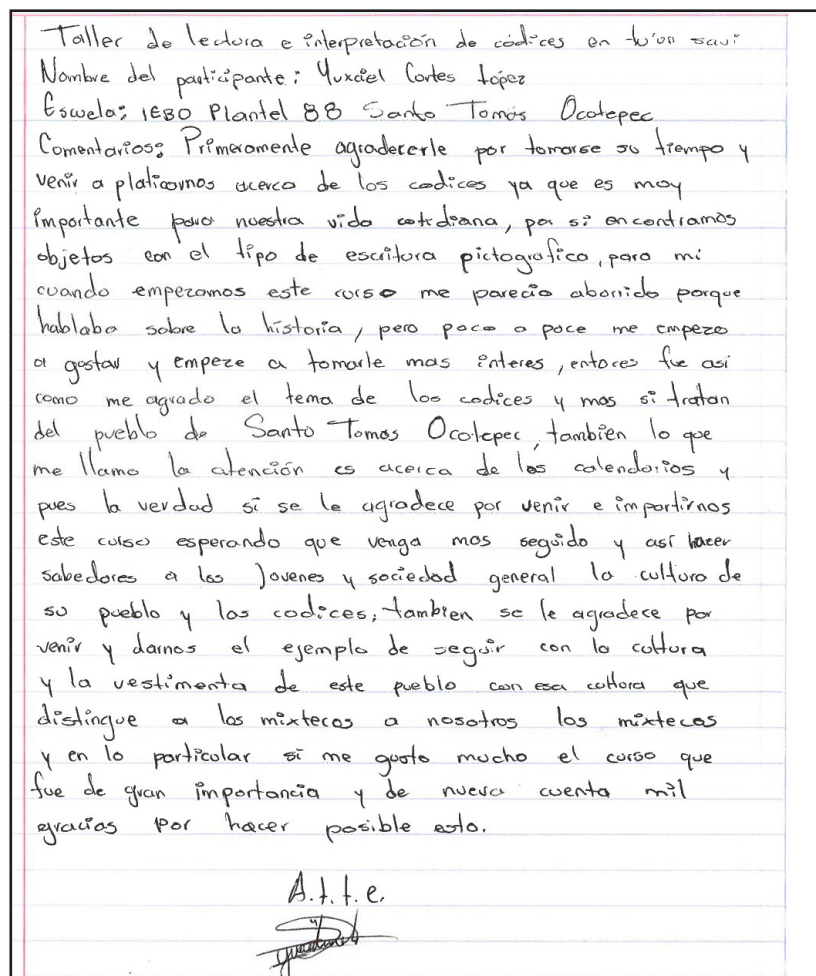 Taller de lectura e interpretación de códices en tu'un savi
Nombre del participante: Yuxciel Cortes López
Escuela: IEBO Plantel 88 Santo Tomás Ocotepec
Comentarios: Primeramente agradecerle por tomarse su tiempo y
venir a platicarnos acerca de los codices ya que es muy
importante para nuestra vida cotidiana, por si encontramos
objetos con el tipo de escritura pictografico, para mi
cuando empezamos este curso me parecio aburrido porque
hablaba sobre la historia, pero poco a poco me empezo
a gustar y empeze a tomarle mas interes, entoces fue asi
como me agrado el tema de los codices y mas si tratan
del pueblo de Santo Tomas Ocotepec, tambien lo que
me llamo la atención es acerca de los calendarios y
pues la verdad si se le agradece por venir e impartirnos
este curso esperando que venga mas seguido y así hacer
sabedores a los Jovenes y sociedad general la cultura de
su pueblo y los codices; tambien se le agradece por
venir y darnos el ejemplo de seguir con la cultura
y la vestimenta de este pueblo con esa cultura que
distingue a los mixtecos a nosotros los mixtecos
y en lo particular si me gusto mucho el curso que
fue de gran importancia y de nueva cuenta mil
gracias por hacer posible esto.
A.t.t.e.